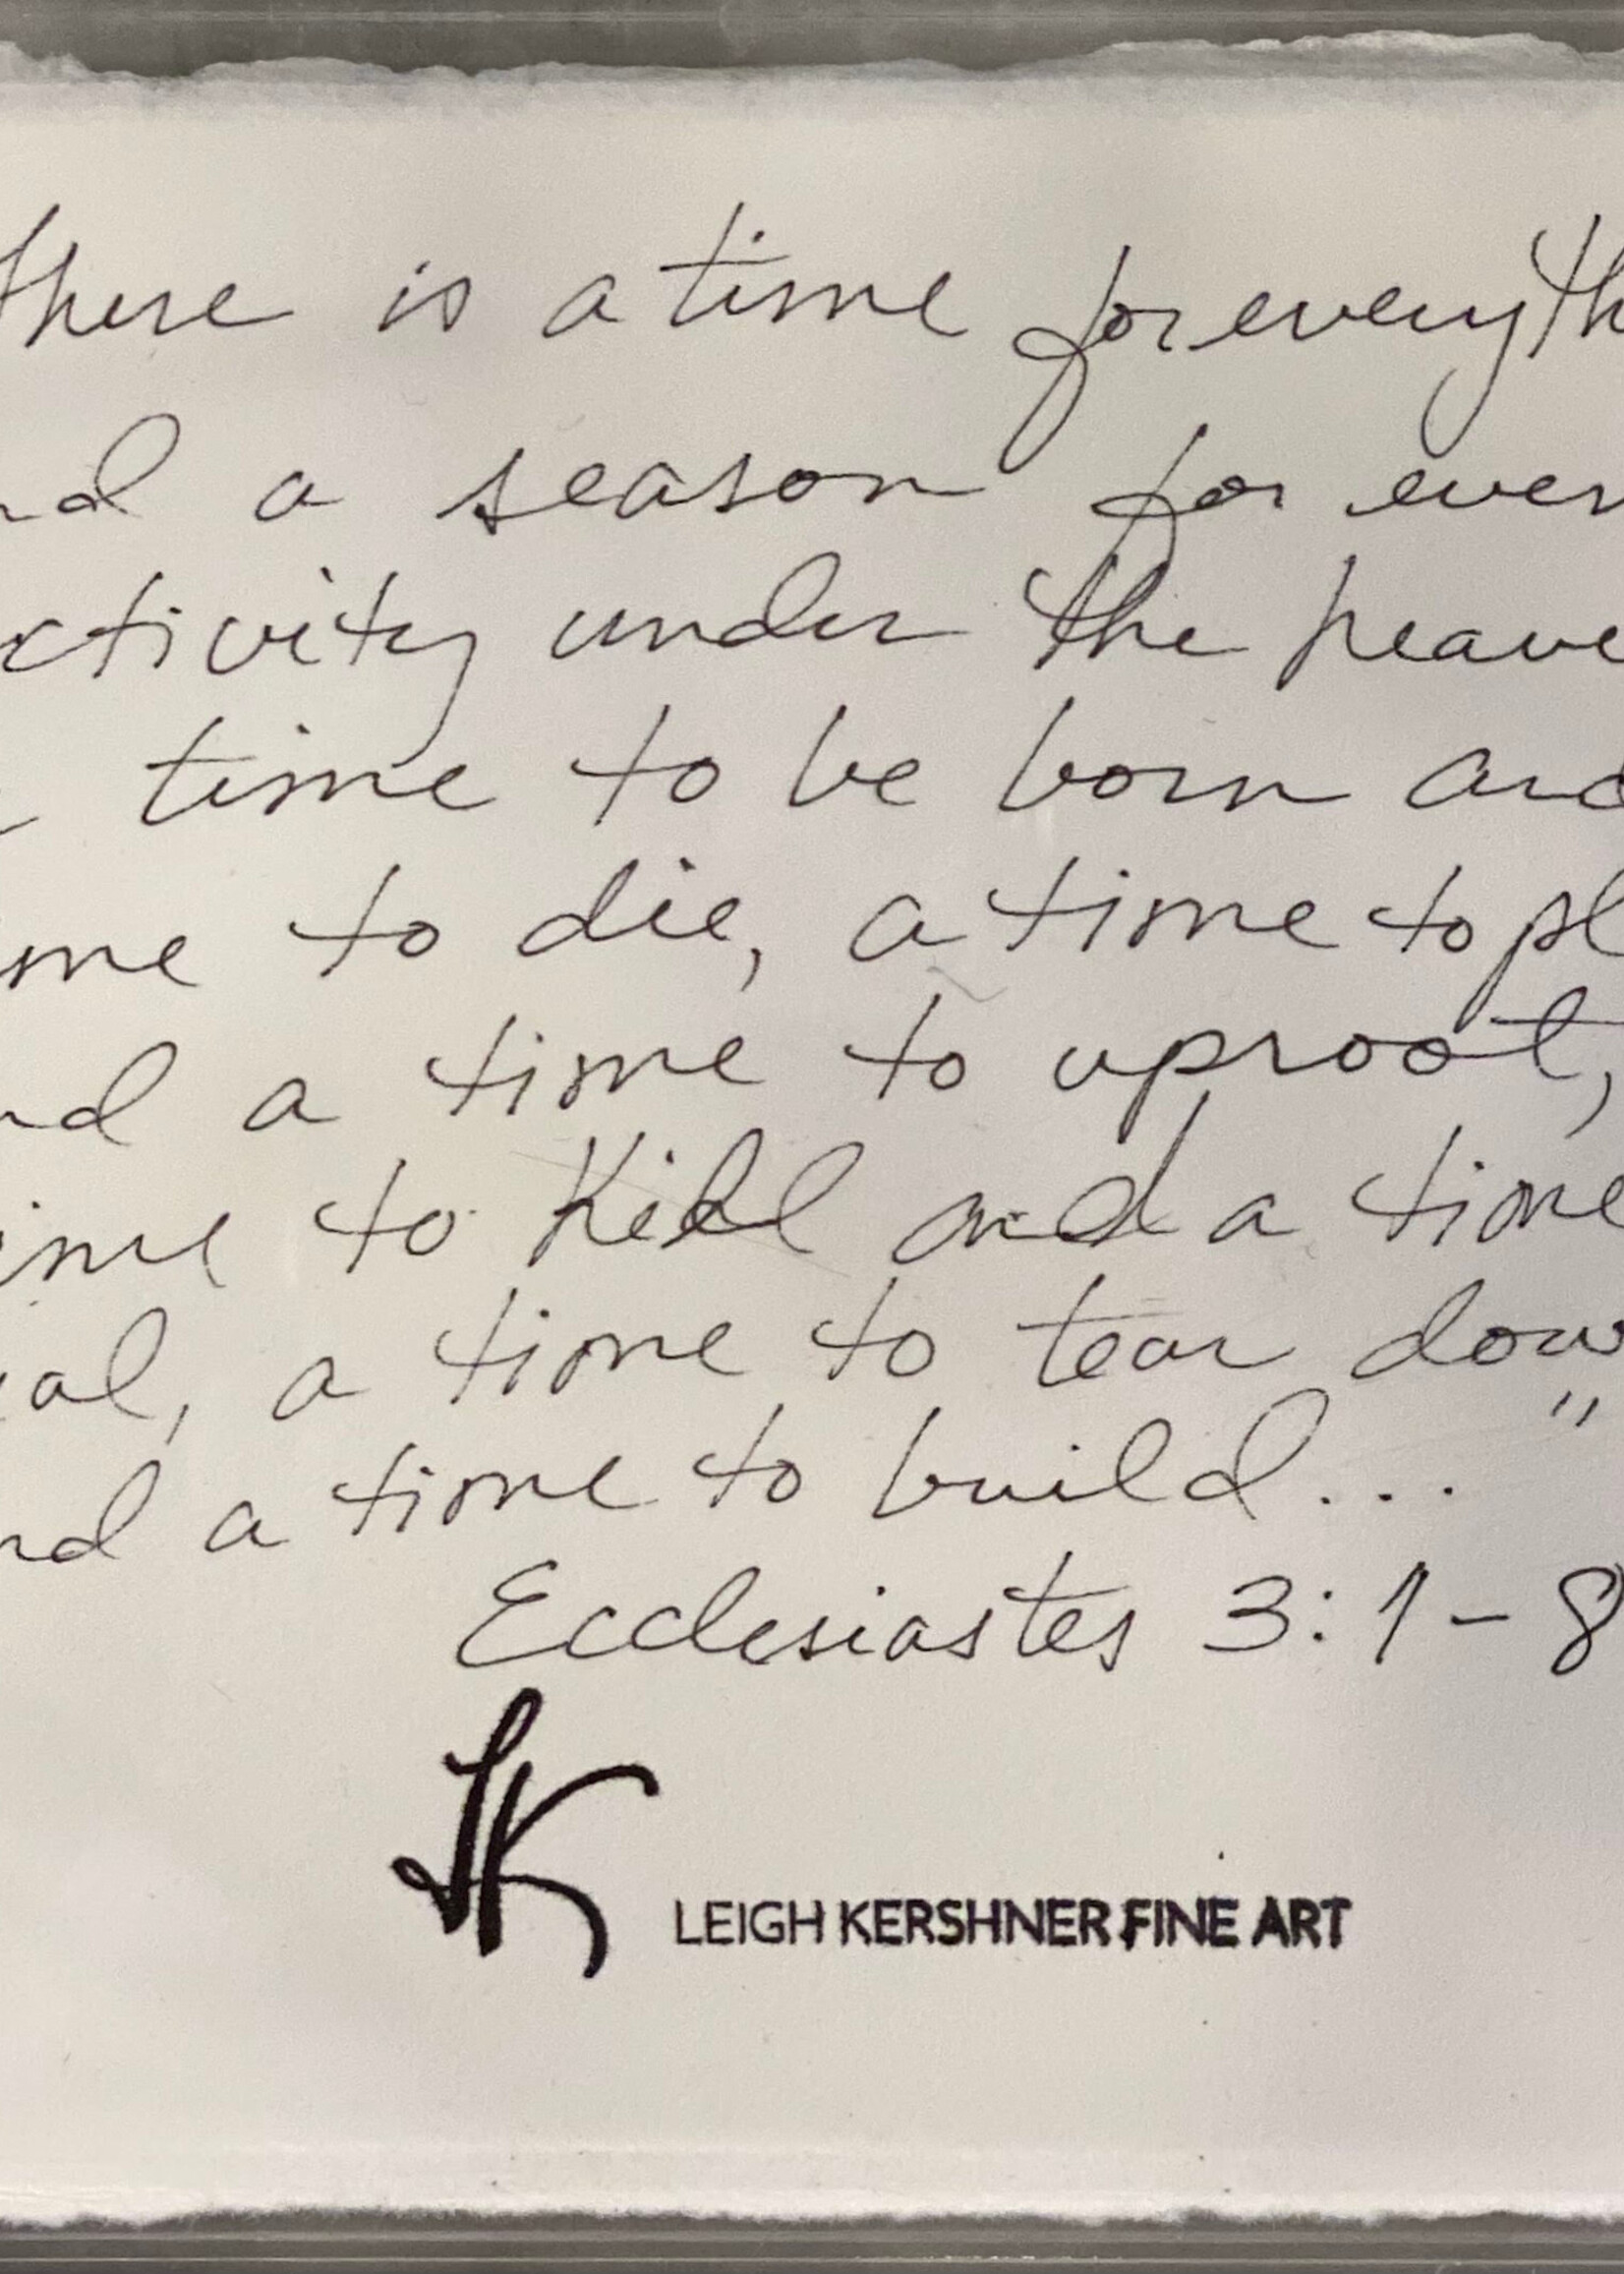 there is a time for everyth
nd a season for ever
ctivity under the heave
time to be born and
me to die, a time to pl
nd a time to uproot,
ime to Kill and a time
al, a time to tear dow
nd a time to build... "
Ecclesiastes 3:1-8
LK
LEIGH KERSHNER FINE ART